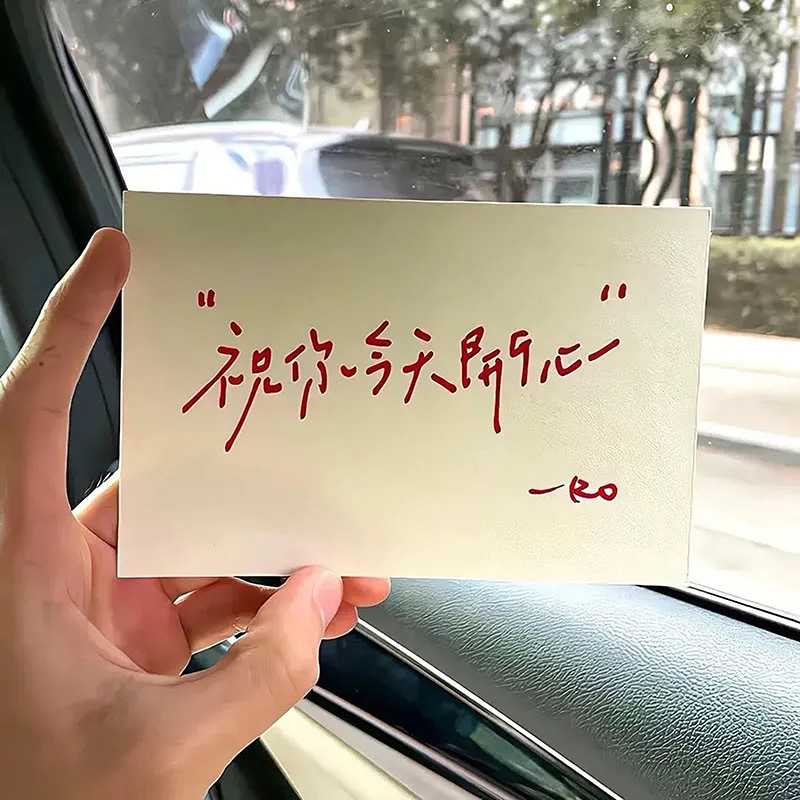 "祝你今天開心"
—RO